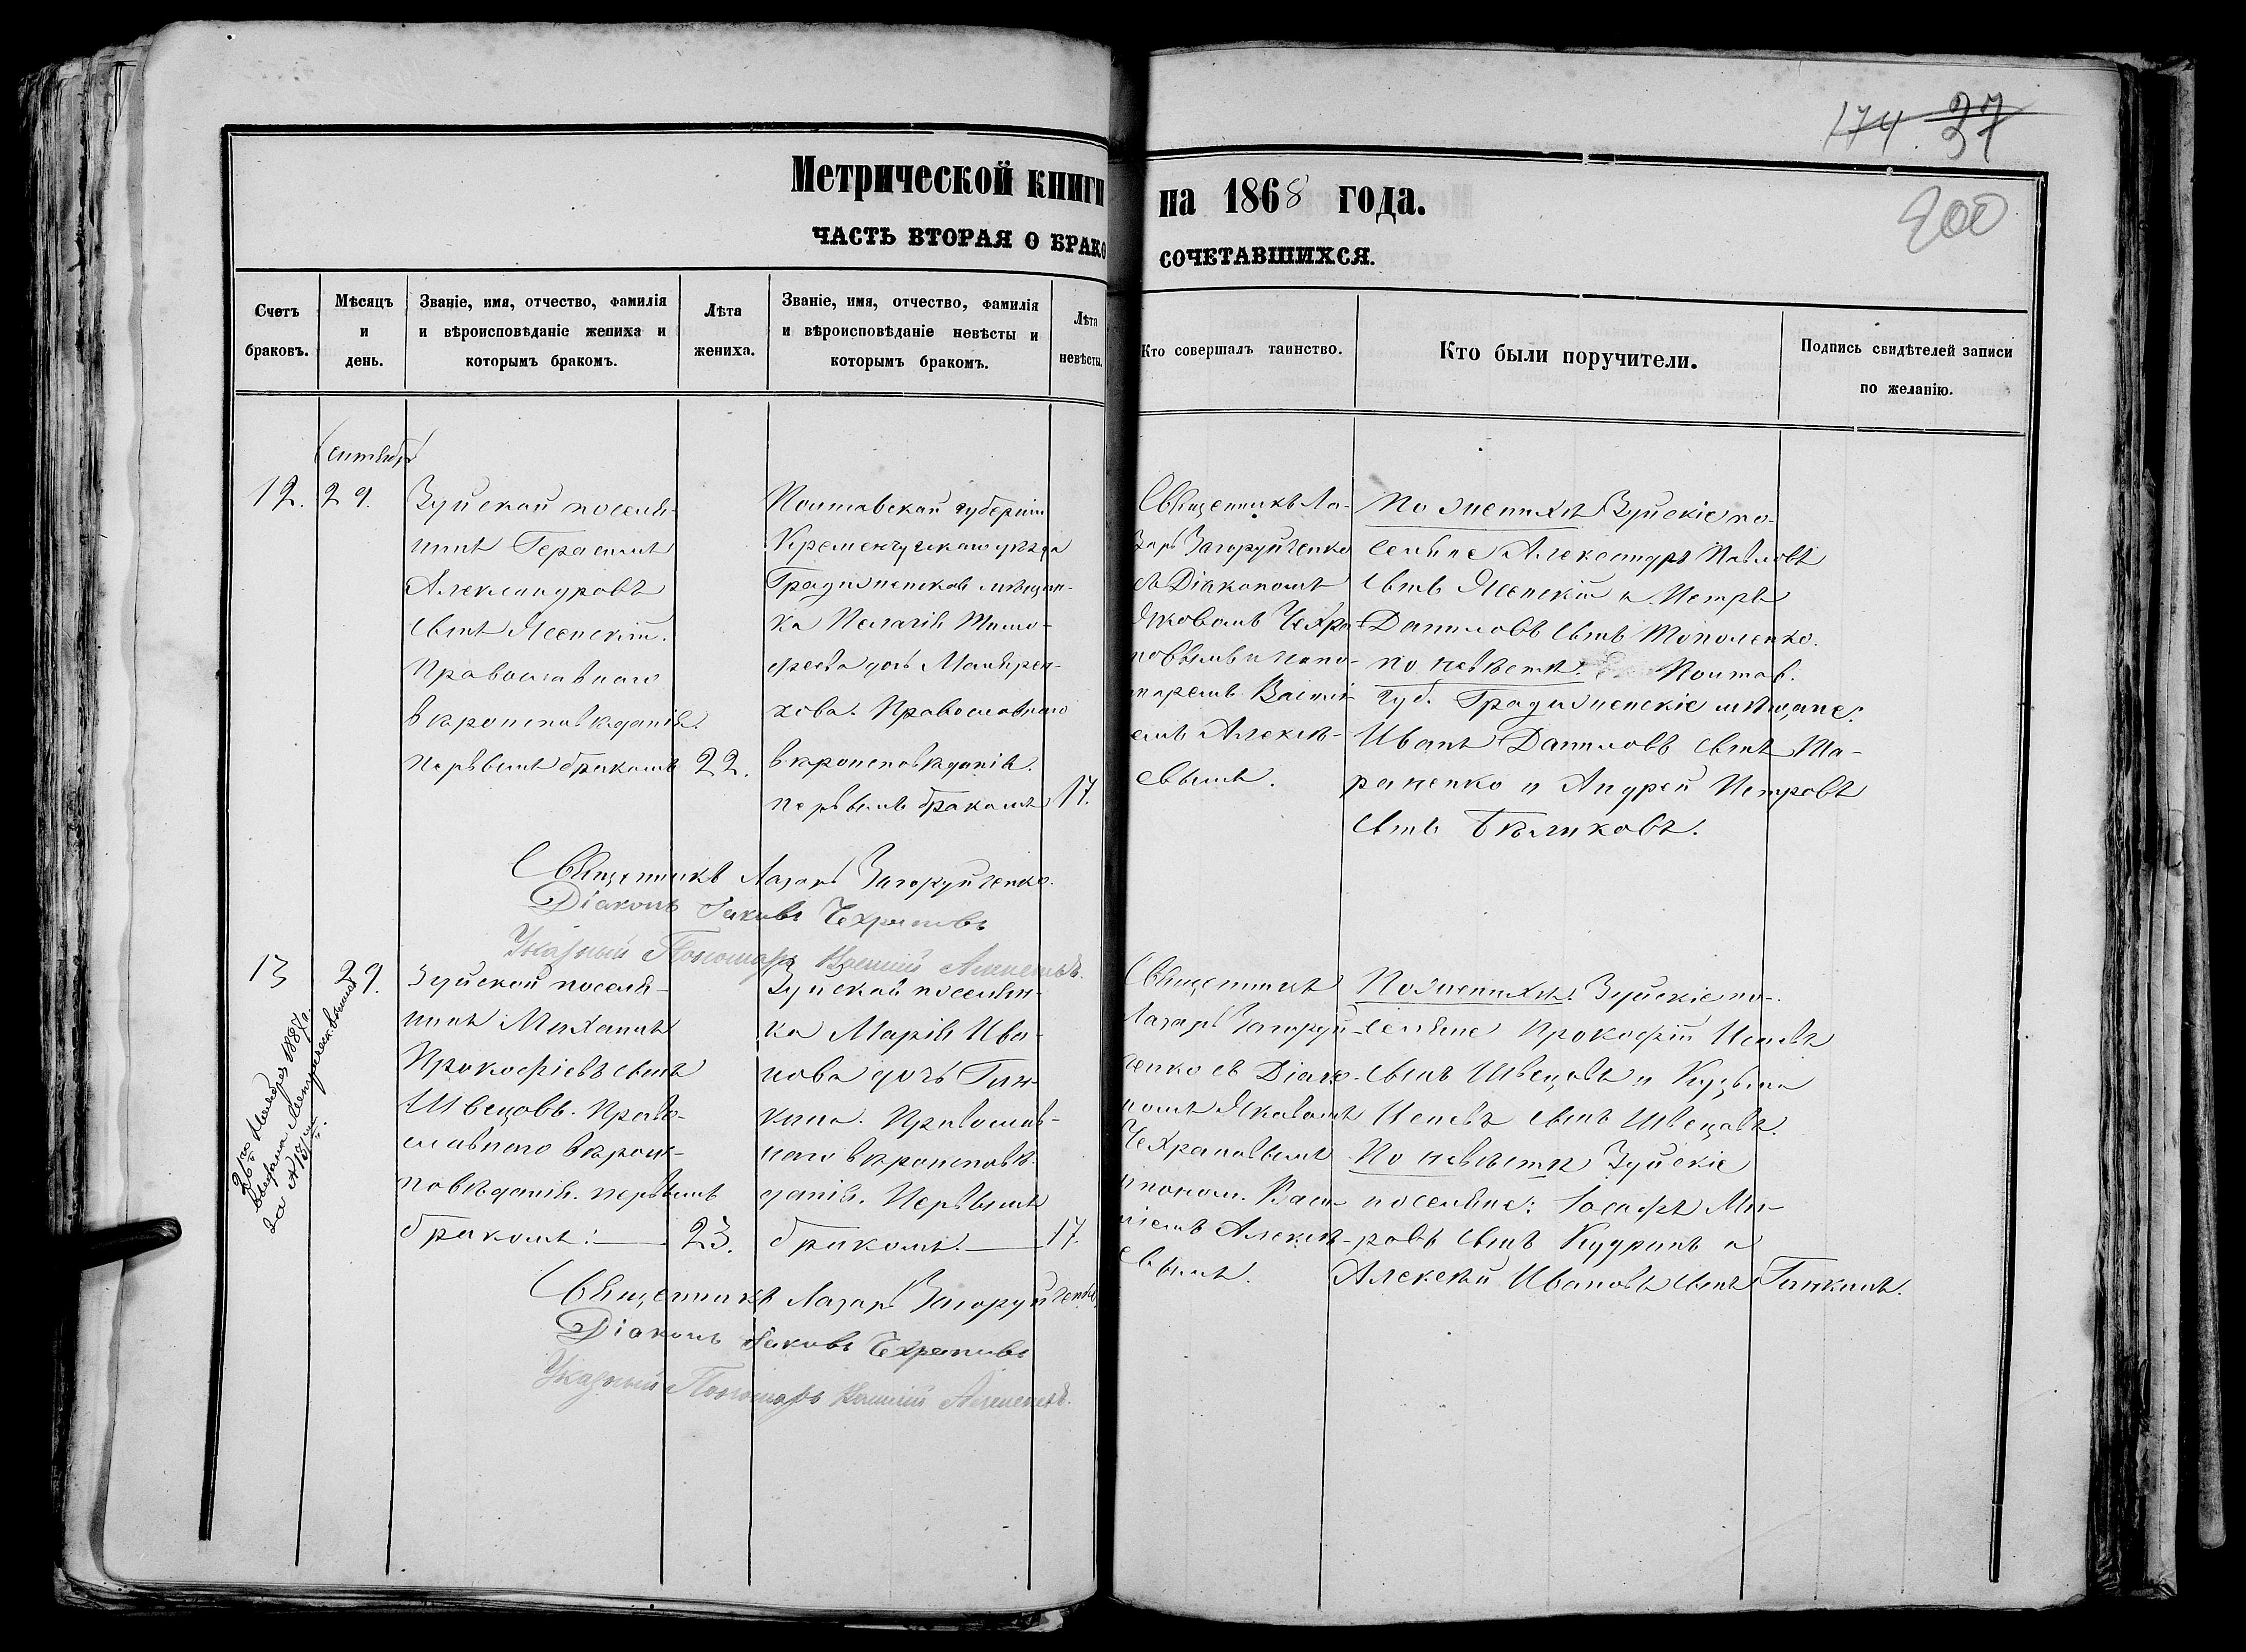 174. 37
200
Метрической книги на 1868 года.
ЧАСТЬ ВТОРАЯ О БРАКОСОЧЕТАВШИХСЯ.
Счетъ
браковъ.
Мѣсяцъ
и
день.
Званіе, имя, отчество, фамилія
и вѣроисповѣданіе жениха и
которымъ бракомъ.
Лѣта
жениха.
Званіе, имя, отчество, фамилія
и вѣроисповѣданіе невѣсты и
которымъ бракомъ.
Лѣта
невѣсты.
Кто совершалъ таинство.
Кто были поручители.
Подпись свидѣтелей записи
по желанію.
Сентябрь
12.
29.
Зуйской поселя-
нинъ Герасимъ
Александровъ
сынъ Ясенскій.
Православнаго
вѣроисповѣданія.
Первымъ бракомъ
22.
Полтавской губерніи
Кременчугскаго уѣзда
Градижская мѣщан-
ка Пелагія Тимо-
феева дочь
хова. Православнаго
вѣроисповѣданія.
первымъ бракомъ
17.
Священникъ Ла-
зарь Загоруйченко
съ Діакономъ
Яковомъ Чехра-
новымъ и поно-
маремъ Васили-
емъ Алексѣ-
евымъ.
По женихѣ Зуйскіе по-
селяне Александръ Павловъ
сынъ Ясенскій и Петръ
Даниловъ сынъ Тополенко.
по невѣстѣ: Полтав.
губ. Градижскіе мѣщане:
Иванъ Даниловъ сынъ Та-
раненко и Андрей Петровъ
сынъ Бѣликовъ.
Священникъ Лазарь Загоруйченко.
Діаконъ Іаковъ Чехрановъ
Указный Пономарь Василій Алексѣевъ.
13
29.
Зуйской поселя-
нинъ Михаилъ
Прокофіевъ сынъ
Швецовъ. Право-
славнаго вѣроис-
повѣданія. первымъ
бракомъ:
23.
Зуйская поселян-
ка Марія Ива-
нова дочь Ган-
кина. Православ-
наго вѣроисповѣ-
данія. Первымъ
бракомъ.
17.
Священникъ
Лазарь Загоруй-
ченко съ Діако-
номъ Яковомъ
Чехрановымъ
и поном. Васи-
ліемъ Алексѣ-
евымъ.
По женихѣ: Зуйскіе по-
селяне Прокофій Исаевъ
сынъ Швецовъ и Кузьма
Исаевъ сынъ Швецовъ.
По невѣстѣ Зуйскіе
поселяне: Іосифъ Ми-
ровъ сынъ Кудринъ и
Алексѣй Ивановъ сынъ Ганкинъ.
Священникъ Лазарь Загоруйченко.
Діаконъ Іаковъ Чехрановъ
Указный Пономарь Василій Алексѣевъ.
26го Ноября 1887 г.
выдана Метрическ. выпись
за №